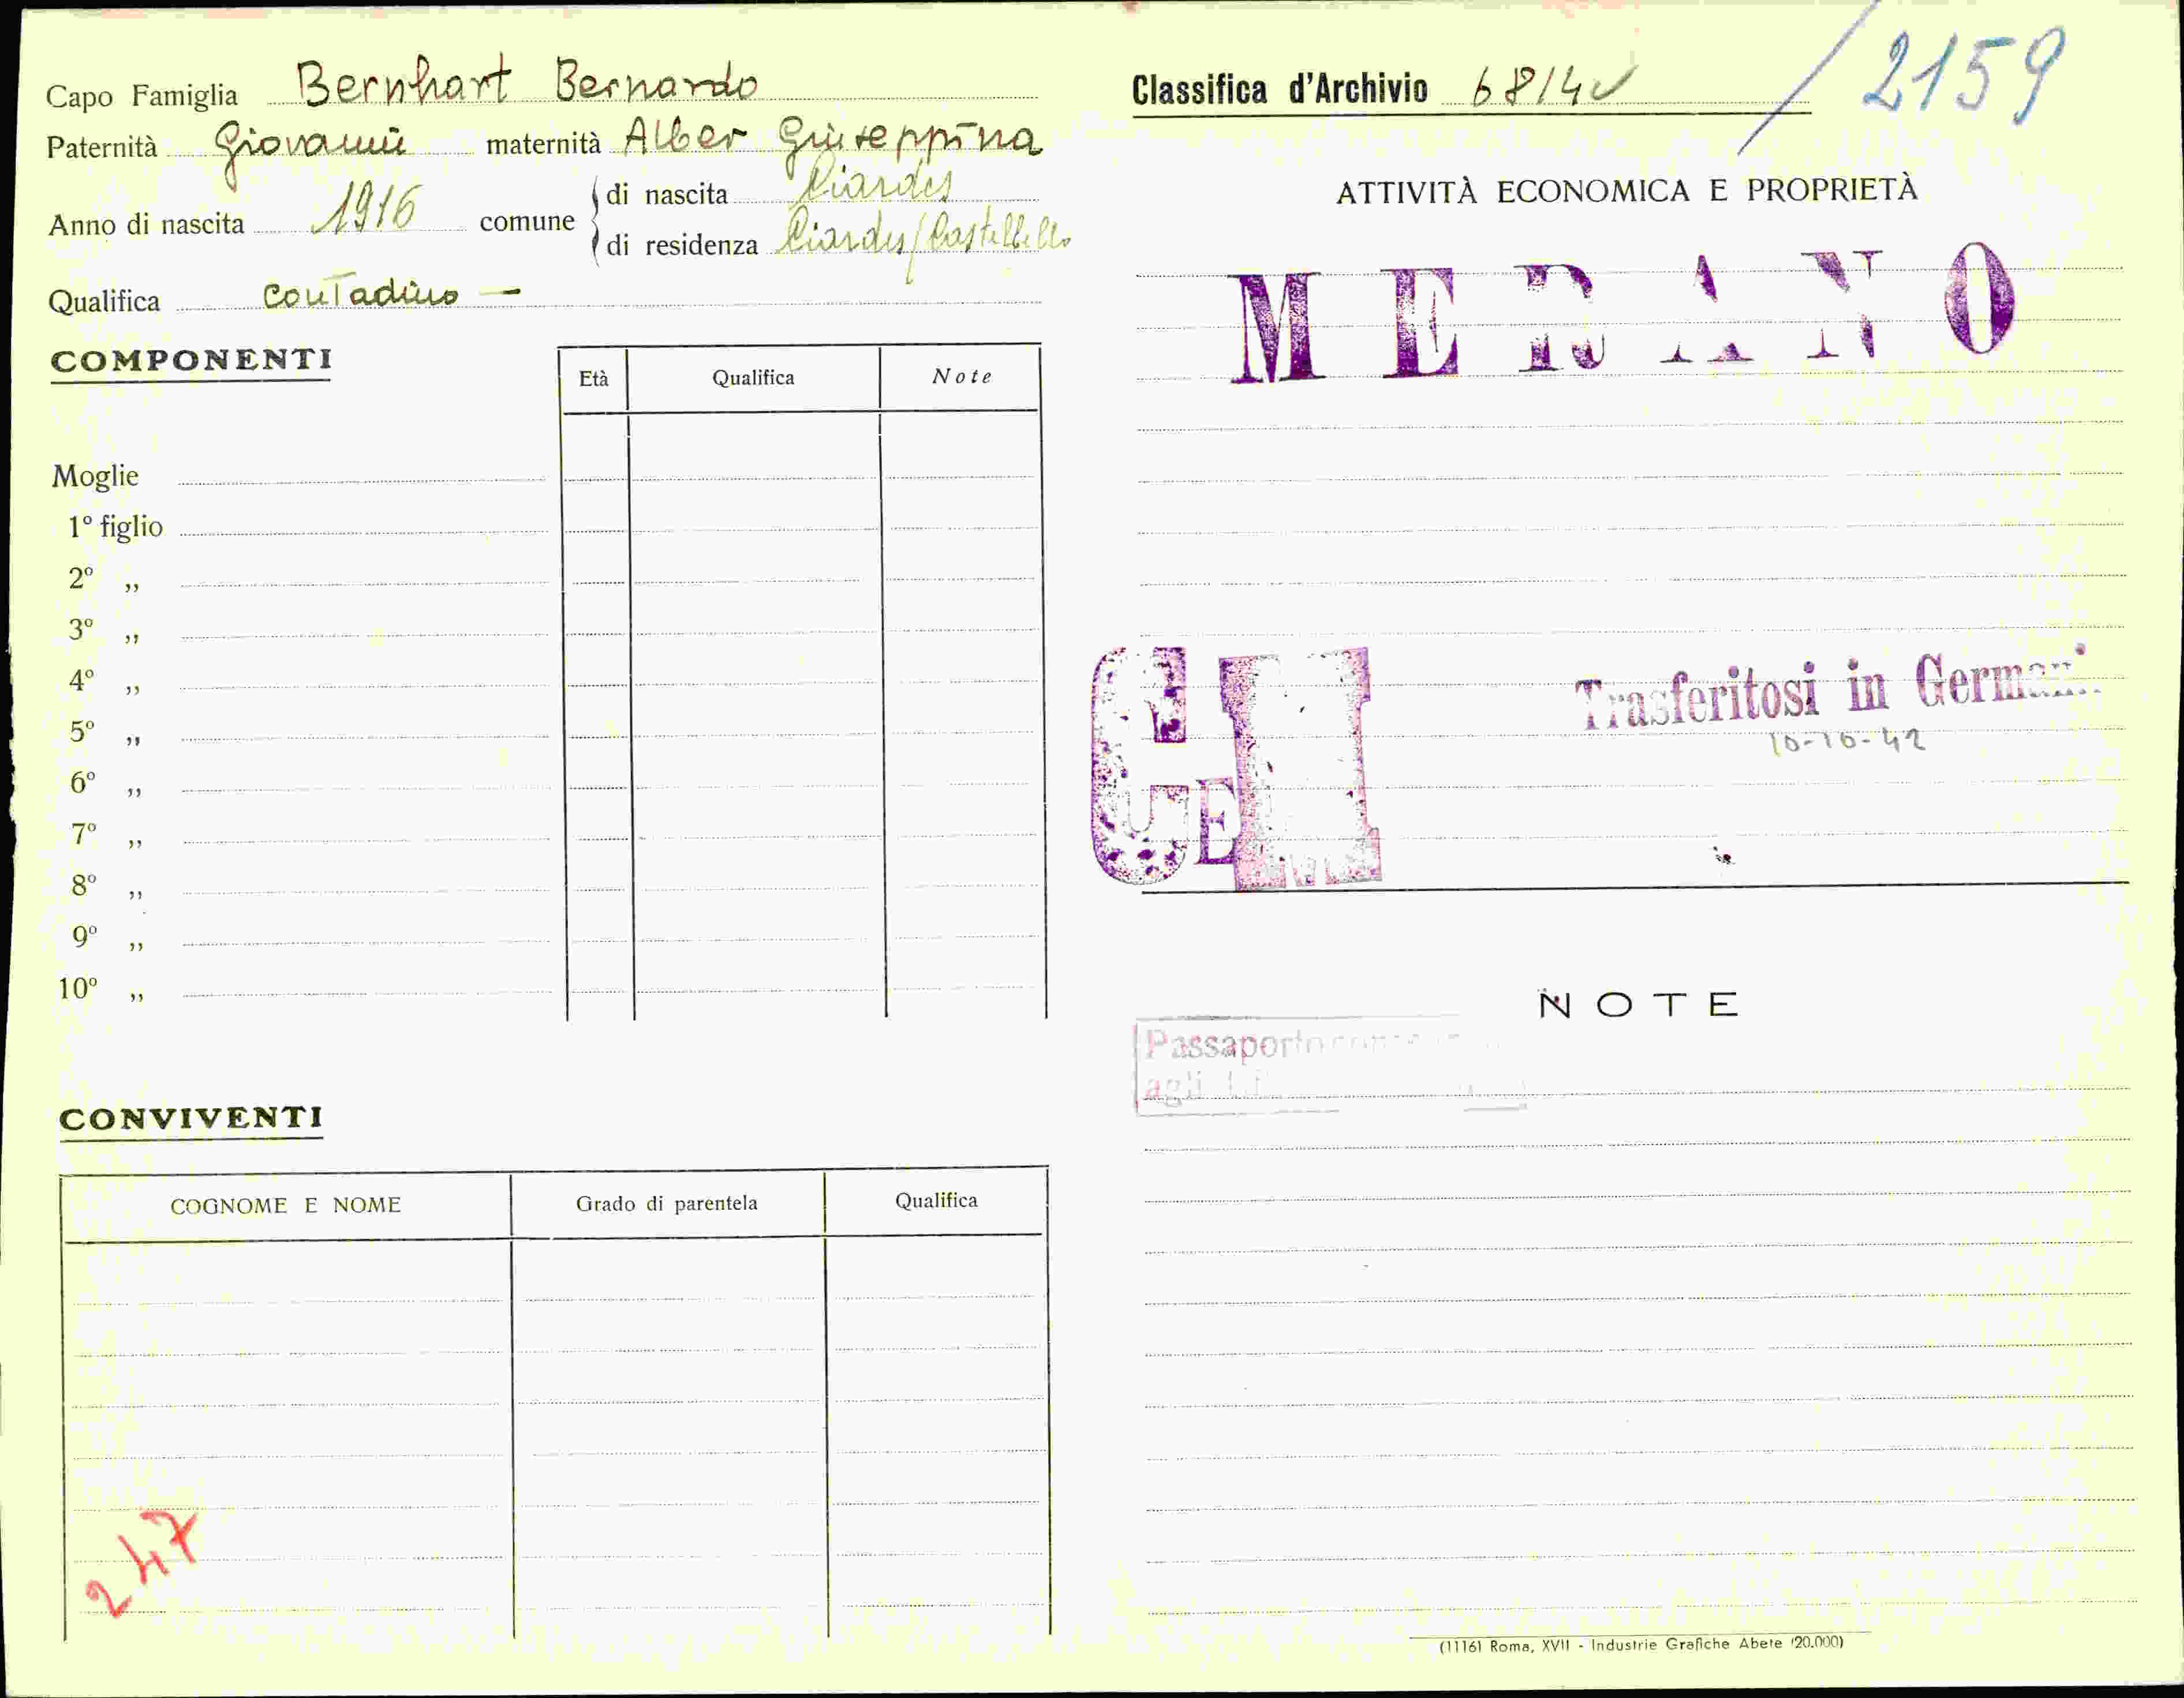 Capo Famiglia Bernhart Bernardo
Paternità Giovanni maternità Alber Giuseppina
Anno di nascita 1916 comune di nascita Ciardes
di residenza Ciardes/Castelbello
Qualifica contadino —
COMPONENTI
Età Qualifica Note
Moglie
1º figlio
2º „
3º „
4º „
5º „
6º „
7º „
8º „
9º „
10º „
CONVIVENTI
COGNOME E NOME Grado di parentela Qualifica
247
Classifica d'Archivio 68/4
/2159
ATTIVITÀ ECONOMICA E PROPRIETÀ
MERANO
Trasferitosi in
10-10-42
NOTE
Passaporto
agli
(11161 Roma, XVII - Industrie Grafiche Abete (20.000)